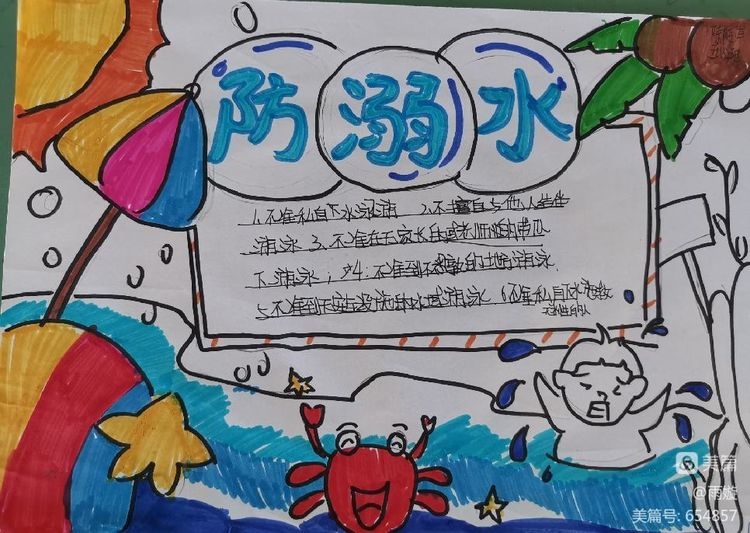 防溺水
1.不准私自下水游泳 2.不擅自与他人结伴
游泳 3.不准在无家长或老师的带队
下游泳;4.不准到不熟的地方游泳
5.不准到无安全设施的水域游泳 6.不准私自下水
美篇
@雨璇
美篇号: 654857